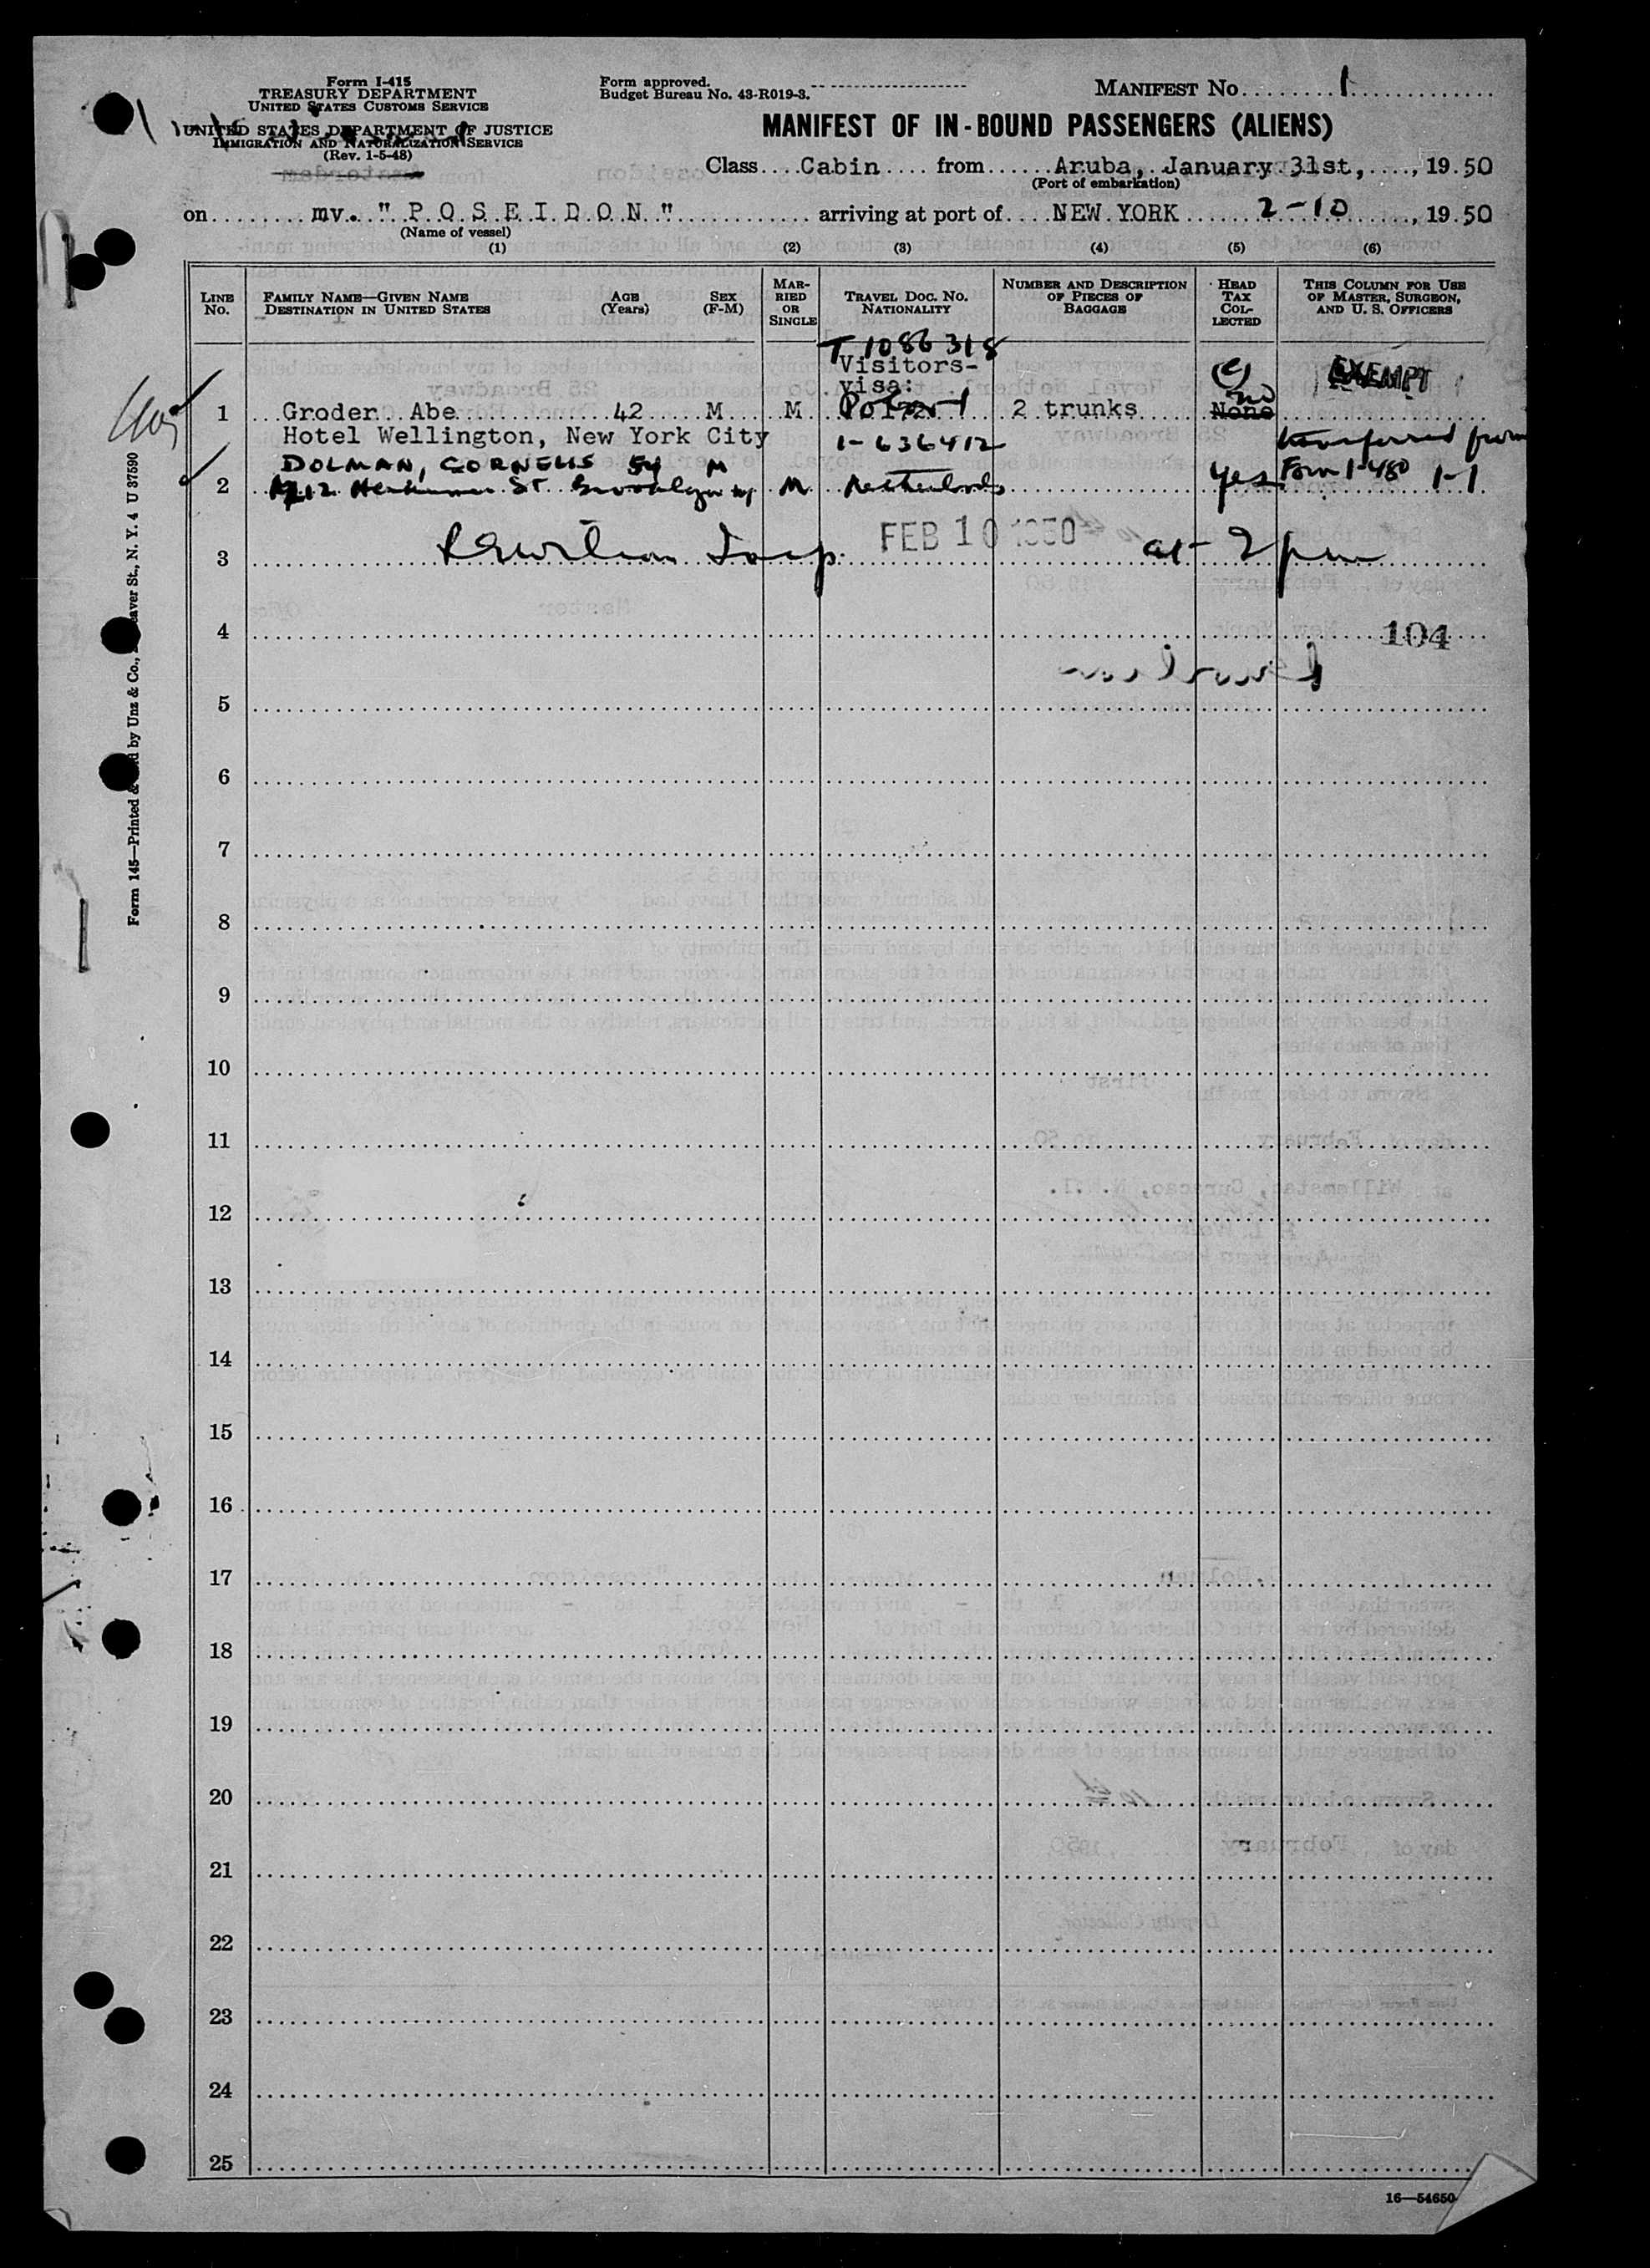 Form I-415
TREASURY DEPARTMENT
UNITED STATES CUSTOMS SERVICE
UNITED STATES DEPARTMENT OF JUSTICE
IMMIGRATION AND NATURALIZATION SERVICE
(Rev. 1-5-48)
Form approved.
Budget Bureau No. 43-R019-3.
MANIFEST No. 1
MANIFEST OF IN-BOUND PASSENGERS (ALIENS)
Class Cabin from Aruba, January 31st, , 19 50
(Port of embarkation)
on mv. "POSEIDON" arriving at port of NEW YORK 2-10, 19 50
(Name of vessel)
(1) (2) (3) (4) (5) (6)
LINE No. FAMILY NAME—GIVEN NAME DESTINATION IN UNITED STATES AGE (Years) SEX (F-M) MARRIED OR SINGLE TRAVEL DOC. NO. NATIONALITY NUMBER AND DESCRIPTION OF PIECES OF BAGGAGE HEAD TAX COLLECTED THIS COLUMN FOR USE OF MASTER, SURGEON, AND U. S. OFFICERS
T 1086318
Visitors-
visa: EXEMPT
no
1 Groder Abe 42 M M 2 trunks None
Hotel Wellington, New York City 1-636412 transferred from
DOLMAN, CORNELIS 54 M Form I-480 1-1
2 St Brooklyn NY M Netherlands yes
3 Insp. FEB 10 1950 at 2 pm
4 104
5
6
7
8
9
10
11
12
13
14
15
16
17
18
19
20
21
22
23
24
25
16—54650
Form 145—Printed by Unz & Co., Beaver St., N. Y. 4 U 37590